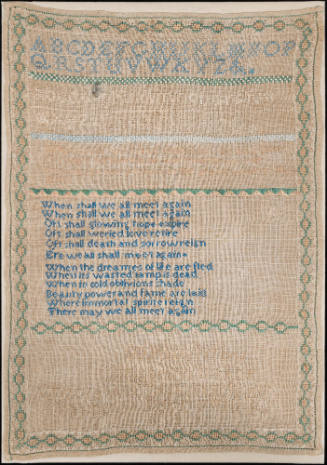 ABCDEFGHIJKLMNOP
QRSTUVWXYZ&
When shall we all meet again
When shall we all meet again
Oft shall glowing hope expire
Oft shall weried love retire
Oft shall death and sorrow reign
Ere we all shall meet again
When the dreames of life are fled
When its wasted lamp is dead
When in cold oblivions shade
Beauty power and fame are laid
Where immortal spirits reign
There may we all meet again